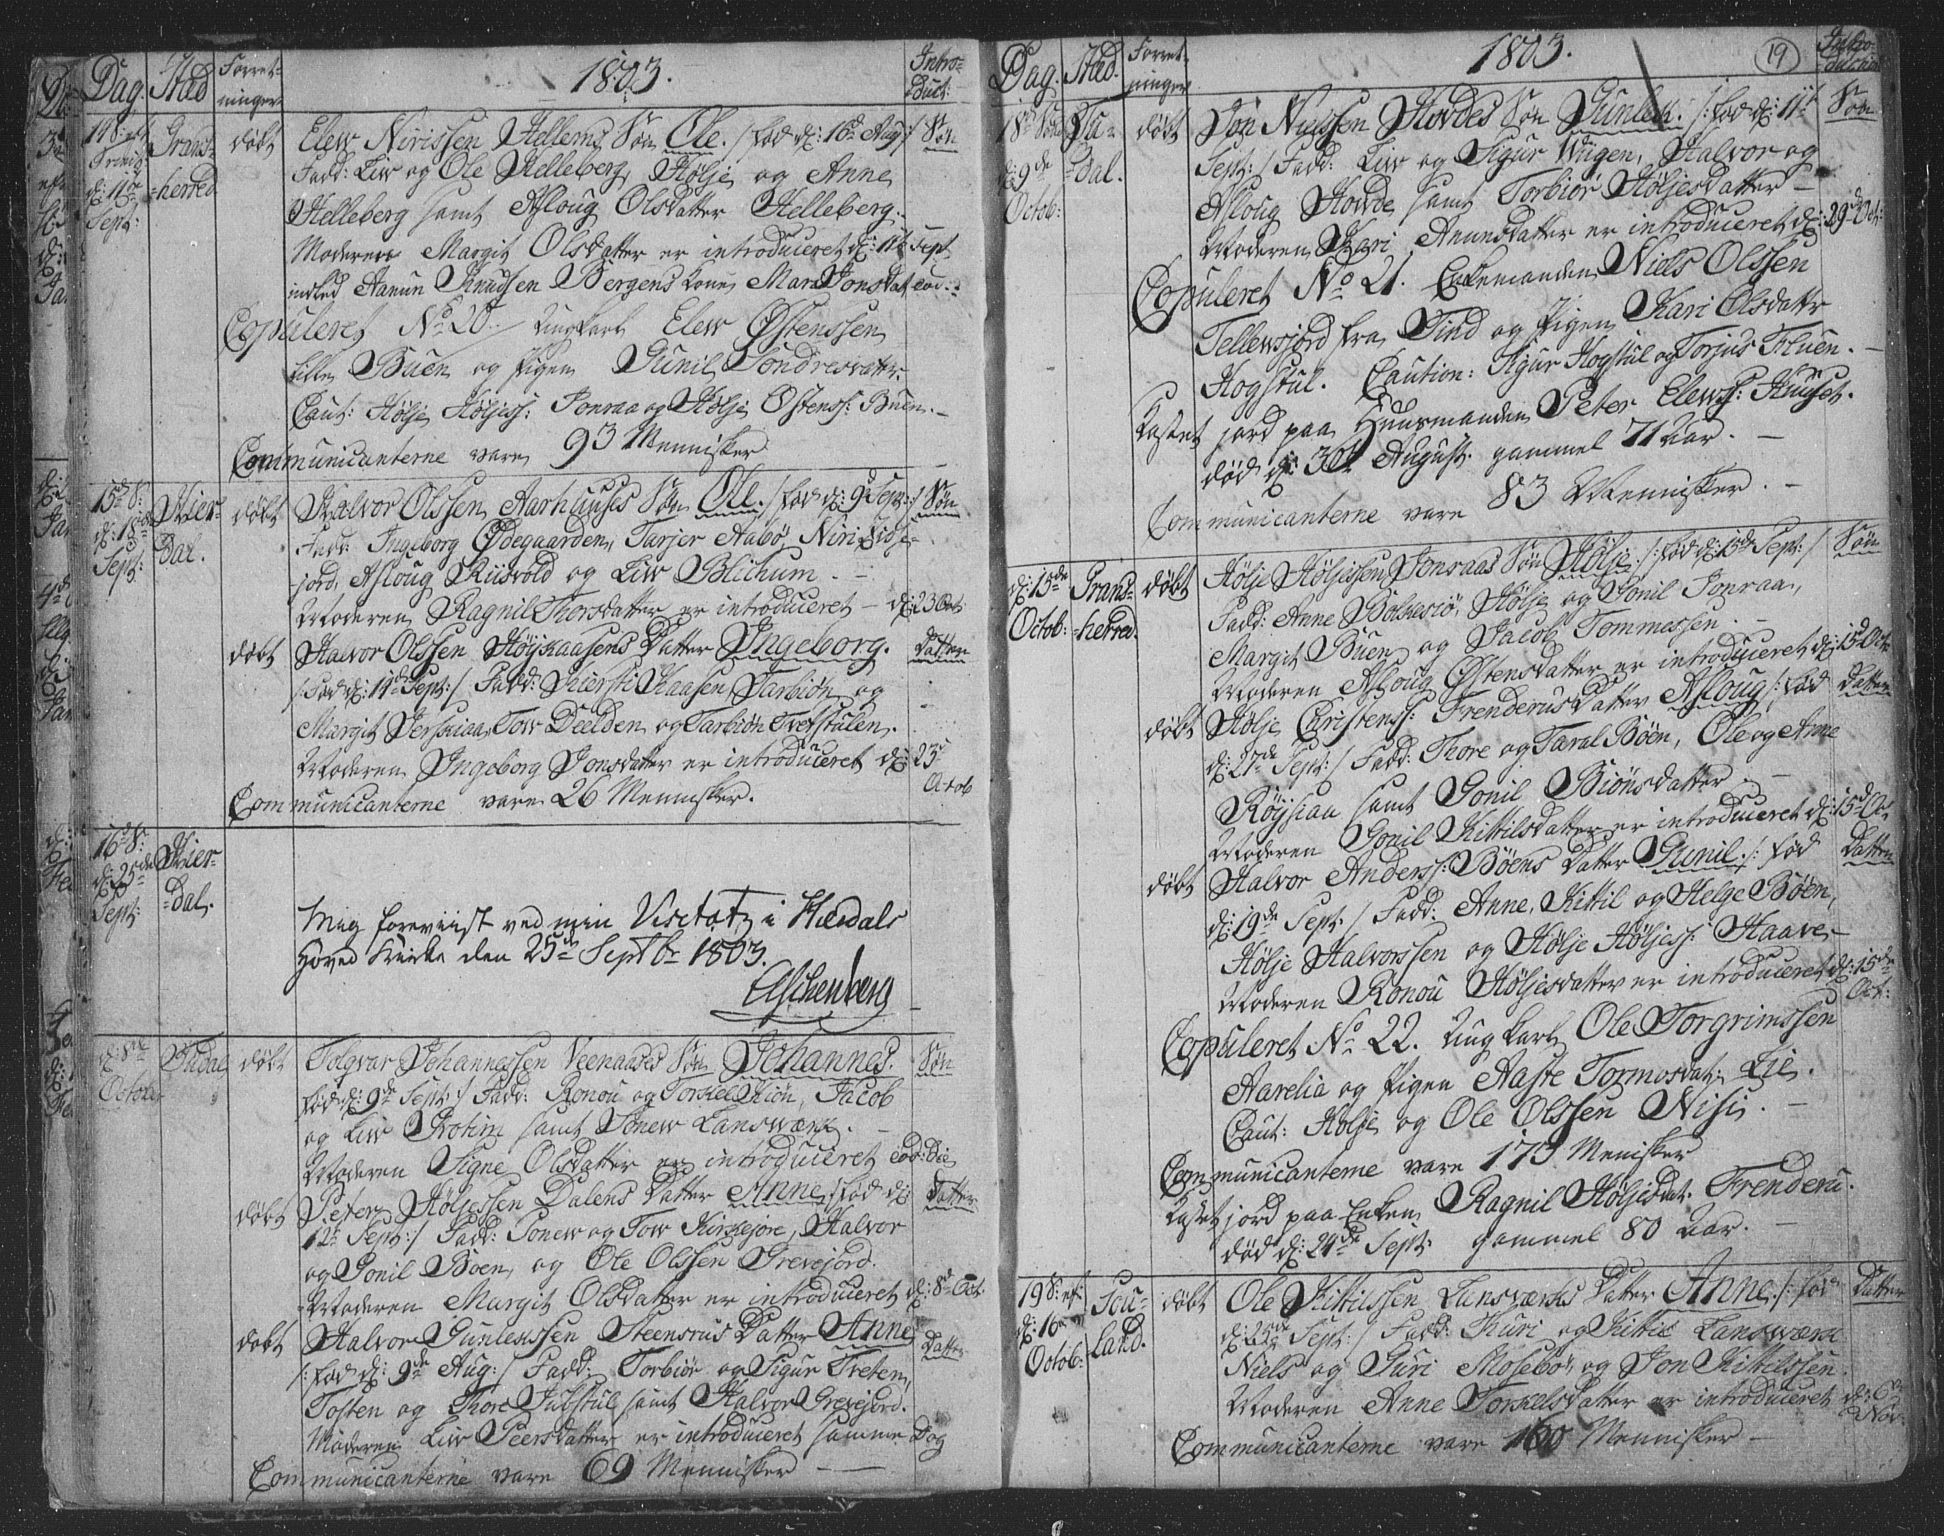 Dag. Stæd Forret-
ninger
1803.
Intro-
duct:
14 S: eft
Trinit:
d: 11te
Sept:
Grans-
herred
døbt Elew Nirissen Hellems Søn Ole. /: fød d: 16d Aug :/ Søn
Fadd: Liv og Ole Helleberg, Hølje og Anne
Helleberg samt Asloug Olsdatter Helleberg.
Moderen Margit Olsdatter er introduceret d: 11te Sept
indled Aanun Knudsen Bergens Kone Mari Jonsdat eod.
Copuleret No 20. Ungkarl Elew Østenssen
Lille Buen og Pigen Gunil Tondresdattr
Caut: Hølje Høljess: Jonraa og Hølje Østenss: Buen.
Communicanterne vare 93 Mennisker
15d S:
d: 18de
Sept:
Hier-
dal.
døbt Halvor Olssen Aarhuuses Søn Ole. /: fød d: 9d Sept: :/ Søn
Fadd: Ingeborg Ødegaarden, Tarjer Aabø, Niri
jord, Asloug Riisvold og Liv Blichum.
Moderen Ragnil Thorsdatter er introduceret d: 23 Oct:
døbt Halvor Olssen Høykaasens Datter Ingeborg. Datter
/: fød d: 14d Sept: :/ Fadd: Kiersti Kaasen, Tarbiør og
Margit Jerskiaa, Tow Deelden og Tarbiør Tverstulen.
Moderen Ingeborg Jonsdatter er introduceret d: 23d
Octob
Communicanterne vare 26 Mennisker.
16d S:
d: 25de
Sept:
Hier-
dal.
Mig foreviist ved min Visitatz i Hierdals
Hoved Kirke den 25de Septbr 1803.
Aschenberg
d: 8de
October
døbt Tolgvar Johannessen Veenaases Søn Johannes. Søn
fød d: 9de Sept: :/ Fadd: Ronou og Torkel Kiøn, Jacob
og Liv Grotim samt Tonew Lansværk.
Moderen Signe Olsdatter er introduceret eod: die
døbt Peter Høljessen Dalens Datter Anne /: fød d: Datter
12te Sept: :/ Fadd: Tonew og Tow Kirkejore, Halvor
og Gonil Bøen, og Ole Olssen Grevejord.
Moderen Margit Olsdatter er introduceret d: 8d Oct:
døbt Halvor Gunlekssen Steensrus Datter Anne Datter
/: fød d: 9de Aug: :/ Fadd: Torbiør og Sigur Treten,
Tosten og Thore Jubstul samt Halvor Grevejord.
Moderen Liv Peersdatter er introduceret samme Dag
Communicanterne vare 69 Mennisker
Dag. Stæd. Forret-
ninger
1803.
19
Intro-
duction
18d Søn
d: 9de
Octob:
dal.
døbt Jon Nielssen Hovdes Søn Gunlek. /: fød d: 11te Søn
Sept: :/ Fadd: Liv og Sigur Wiigen, Halvor og
Asloug Hovde samt Torbiør Høljesdatter
Moderen Kari Anunsdatter er introduceret d: 29d Oct:
Copuleret No 21. Enkemanden Niels Olssen
Tellewsjord fra Tind og Pigen Kari Olsdattr
Hogstul. Caution: Sigur Hogstul og Torjus Fluen.
Kastet jord paa Huusmanden Peter Elewss: Huuset.
død d: 30te August gammel 71 Aar.
Communicanterne vare 83 Mennisker.
d: 15de
Octob:
Grans-
herred.
døbt Hølje Høljessen Jonraas Søn Hølje /: fød d: 15de Sept: :/ Søn
Fadd: Anne Bolkesiø, Hølje og Gonil Jonraa,
Margit Buen og Jacob Tommessen.
Moderen Asloug Østensdatter er introduceret d: 15d Oct:
døbt Hølje Christenss: Frenderus Datter Asloug /: fød Datter
d: 27de Sept: :/ Fadd: Thore og Taral Bøen, Ole og Anne
Røysian samt Gonil Biønsdatter.
Moderen Gonil Kittilsdatter er introduceret d: 15d Oc
døbt Halvor Anderss: Bøens Datter Gunil. /: fød Datter
d: 19de Sept: :/ Fadd: Anne, Kittil og Helge Bøen,
Hølje Halvorssen og Hølje Høljess: Haave
Moderen Ronou Høljesdatter er introduceret d: 15de
Oct:
Copuleret No 22. Ung Karl Ole Torgrimssen
Aarelia og Pigen Aaste Tormosdat: Lie.
Caut: Hølje og Ole Olssen Nisi.
Communicanterne vare 175 Menisker
Kastet jord paa Enken Ragnil Høljesdat: Frenderu.
død d: 24de Sept: gammel 80 Aar.
19 S: ef:
d: 16
Octob:
Sou-
land.
døbt Ole Kittilssen Lansværks Datter Anne. /: fød Datter
d: 25de Sept: :/ Fadd: Kari og Kittil Lansværk
Niels og Guri Mosebø, og Jon Kittilssen.
Moderen Anne Torkelsdatter er introduceret d: 6te
Nov:
Communicanterne vare 160 Mennisker